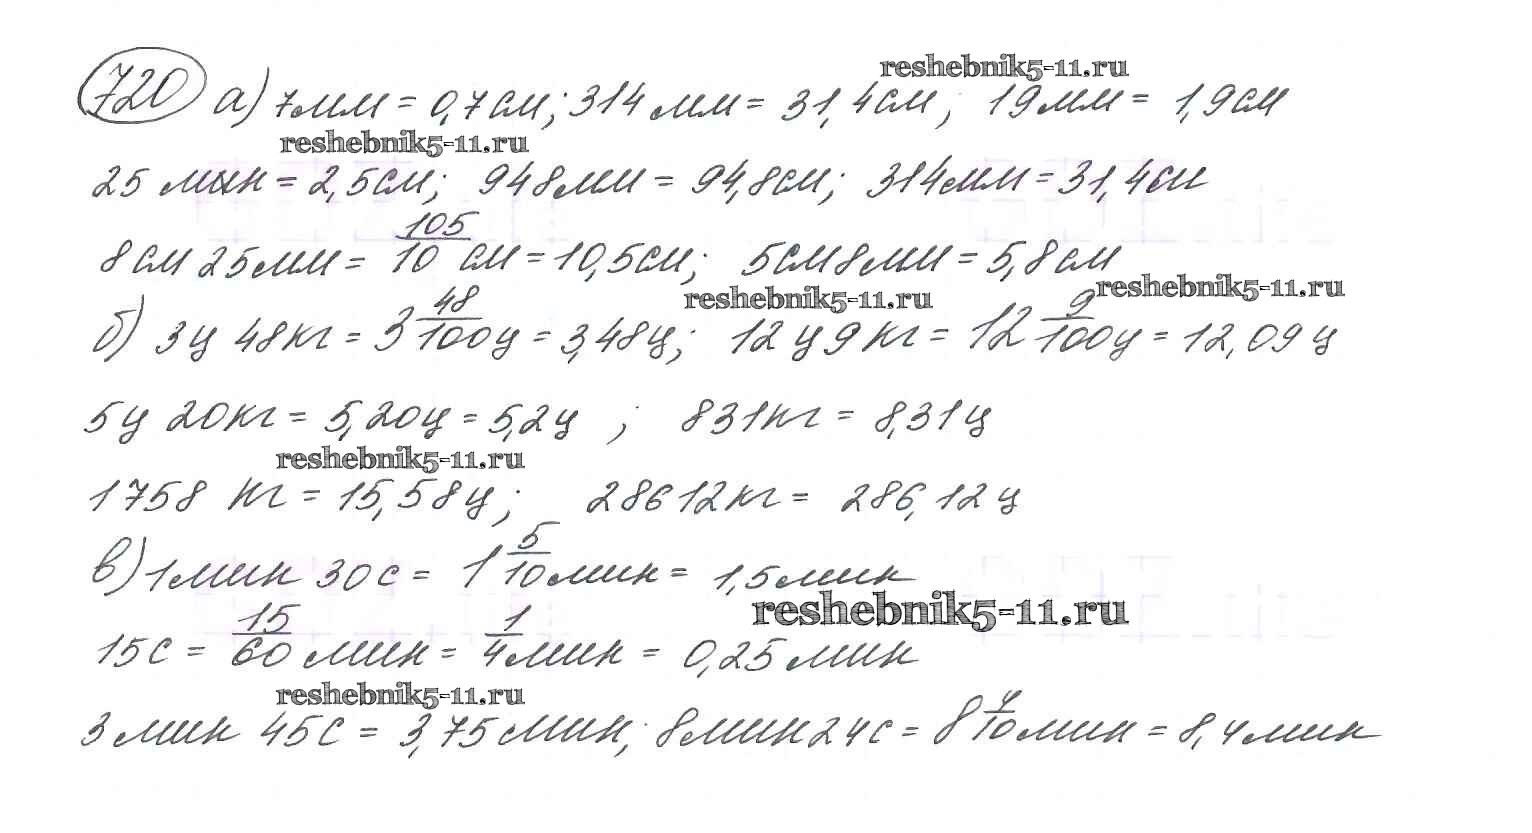 720 а) 7мм = 0,7см; 314 мм = 31,4см; 19мм = 1,9см
reshebnik5-11.ru
reshebnik5-11.ru
25 мин = 2,5см; 948мм = 94,8см; 314мм = 31,4см
8см 25мм = 105/10 см = 10,5см; 5см8мм = 5,8см
reshebnik5-11.ru
reshebnik5-11.ru
б) 3ц 48кг = 3 48/100ц = 3,48ц; 12ц 9кг = 12 9/100ц = 12,09ц
5ц 20кг = 5,20ц = 5,2ц ; 831кг = 8,31ц
reshebnik5-11.ru
1758 кг = 15,58ц; 28612кг = 286,12ц
в) 1мин 30с = 1 5/10мин = 1,5мин
reshebnik5-11.ru
15с = 15/60 мин = 1/4мин = 0,25мин
reshebnik5-11.ru
3мин 45с = 3,75мин; 8мин24с = 8 4/10мин = 8,4мин